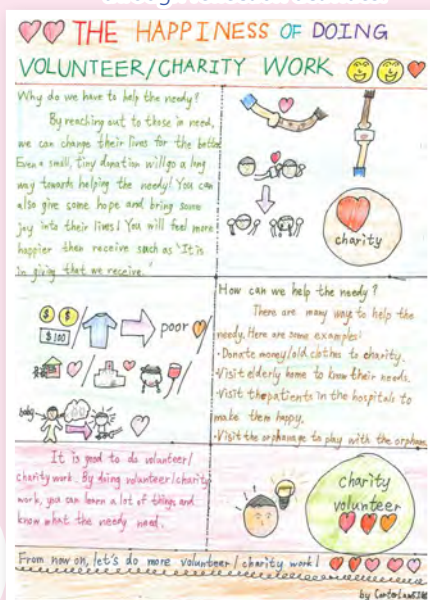 THE HAPPINESS OF DOING
VOLUNTEER/CHARITY WORK
Why do we have to help the needy?
By reaching out to those in need,
we can change their lives for the better.
Even a small, tiny donation will go a long
way towards helping the needy! You can
also give some hope and bring some
joy into their lives! You will feel more
happier than receive such as "It is
in giving that we receive."
charity
$ $
$100
poor
baby
How can we help the needy?
There are many way to help the
needy. Here are some examples:
·Donate money/old clothes to charity.
·Visit elderly home to know their needs.
·Visit the patients in the hospitals to
make them happy.
·Visit the orphanage to play with the orphans
It is good to do volunteer/
charity work. By doing volunteer/charity
work, you can learn a lot of things and
know what the needy need.
charity
volunteer
From now on, let's do more volunteer/charity work!
by